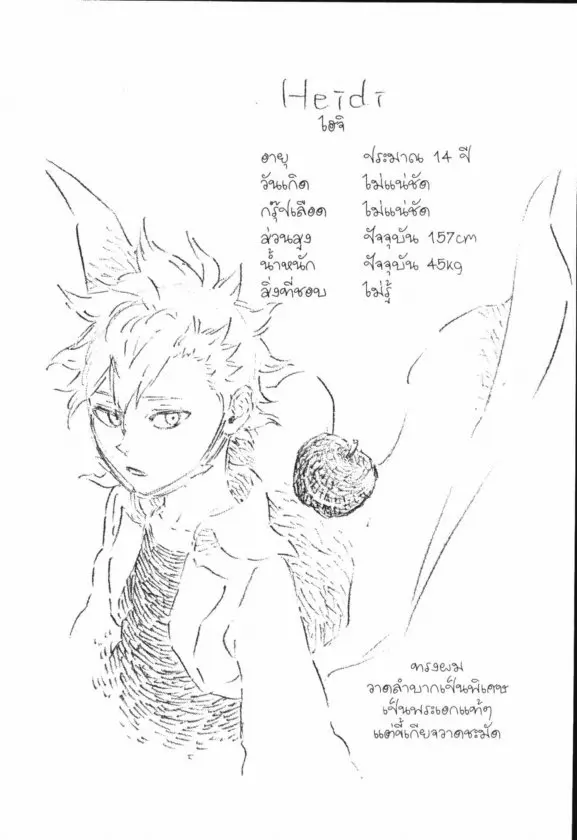 Heidi
ไฮจิ
อายุ ประมาณ 14 ปี
วันเกิด ไม่แน่ชัด
กรุ๊ปเลือด ไม่แน่ชัด
ส่วนสูง ปัจจุบัน 157cm
น้ำหนัก ปัจจุบัน 45kg
สิ่งที่ชอบ ไม่รู้
ทรงผม
วาดลำบากเป็นพิเศษ
เป็นพระเอกแท้ๆ
แต่ขี้เกียจวาดชะมัด